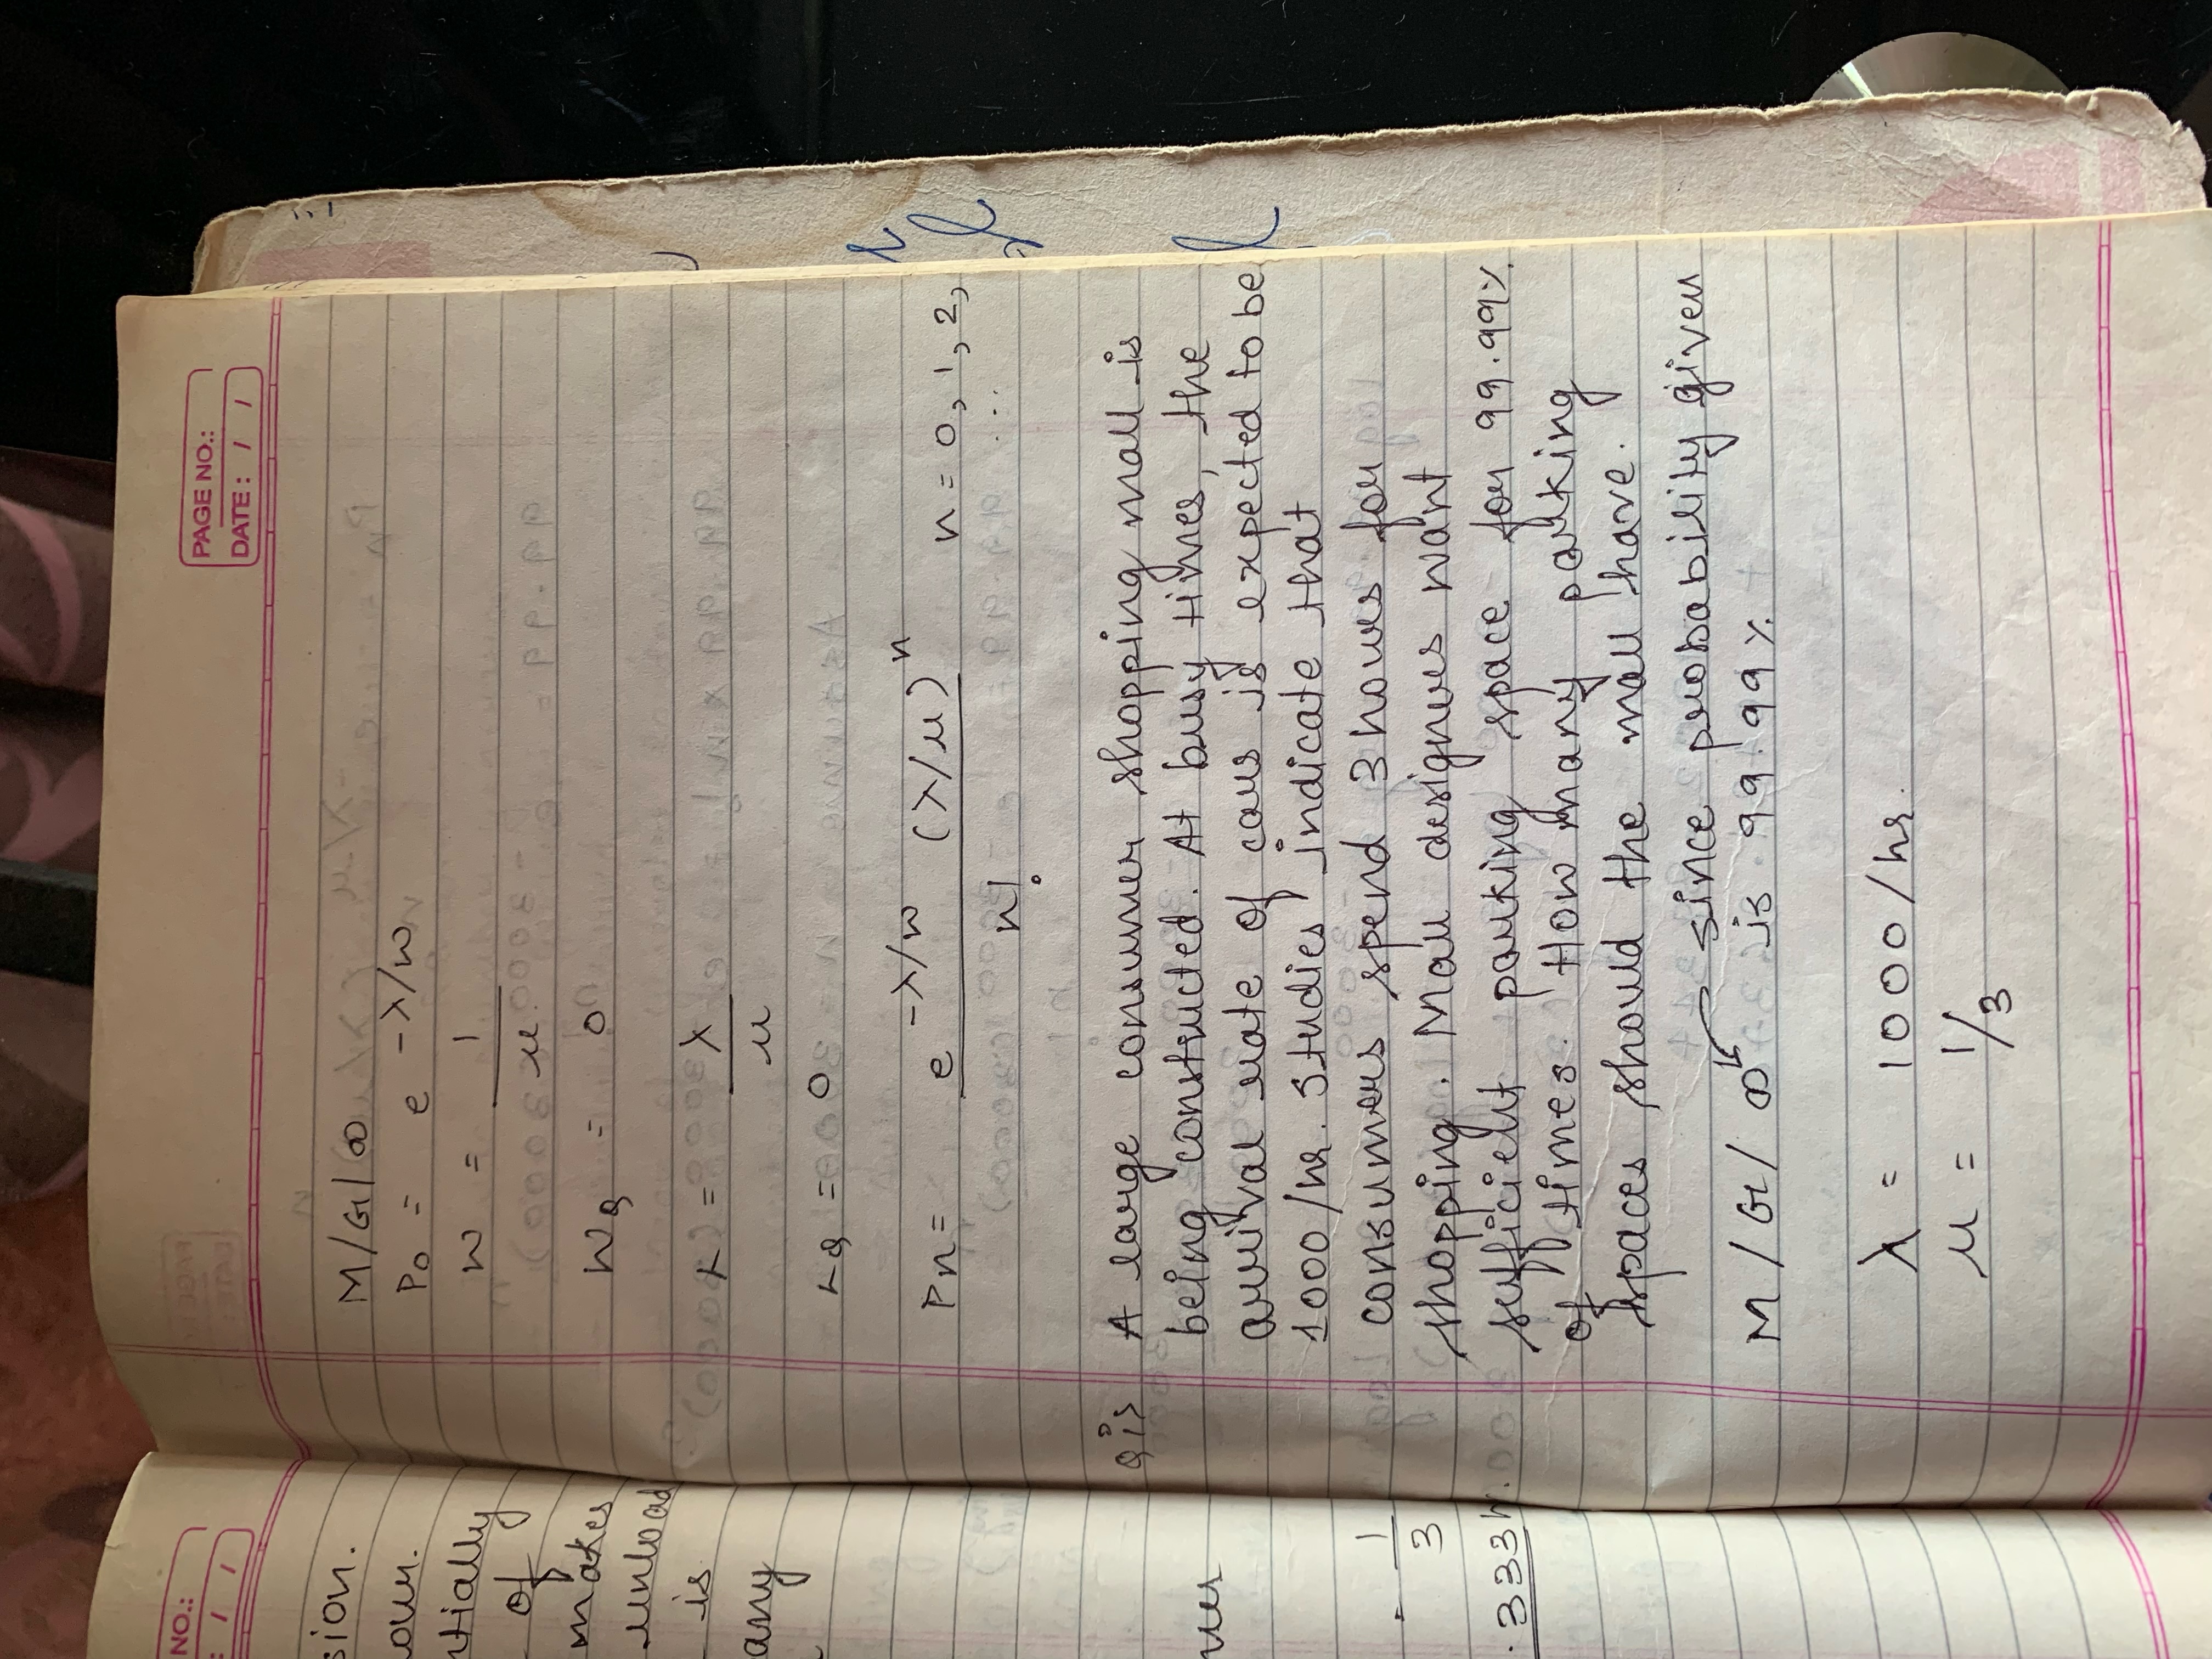 NO.:
: / /
sion.
our.
ntially
of
makes
unload
is
any
ner
= 1
3
.333h.
PAGE NO.:
DATE: / /
M/G/∞
P0 = e -λ/w
w = 1
μ
WQ = 0
L = λ
μ
LQ = 0
Pn = e -λ/w (λ/μ)n n = 0, 1, 2,
n! ...
Q is A large consumer shopping mall is
being constructed. At busy times, the
arrival rate of cars is expected to be
1000/hr. Studies indicate that
consumers spend 3 hours for
shopping. Mall designers want
sufficient parking space for 99.99%
of times. How many parking
spaces should the mall have.
since probability given
M/G/∞ is 99.99%
λ = 1000/hr.
μ = 1/3